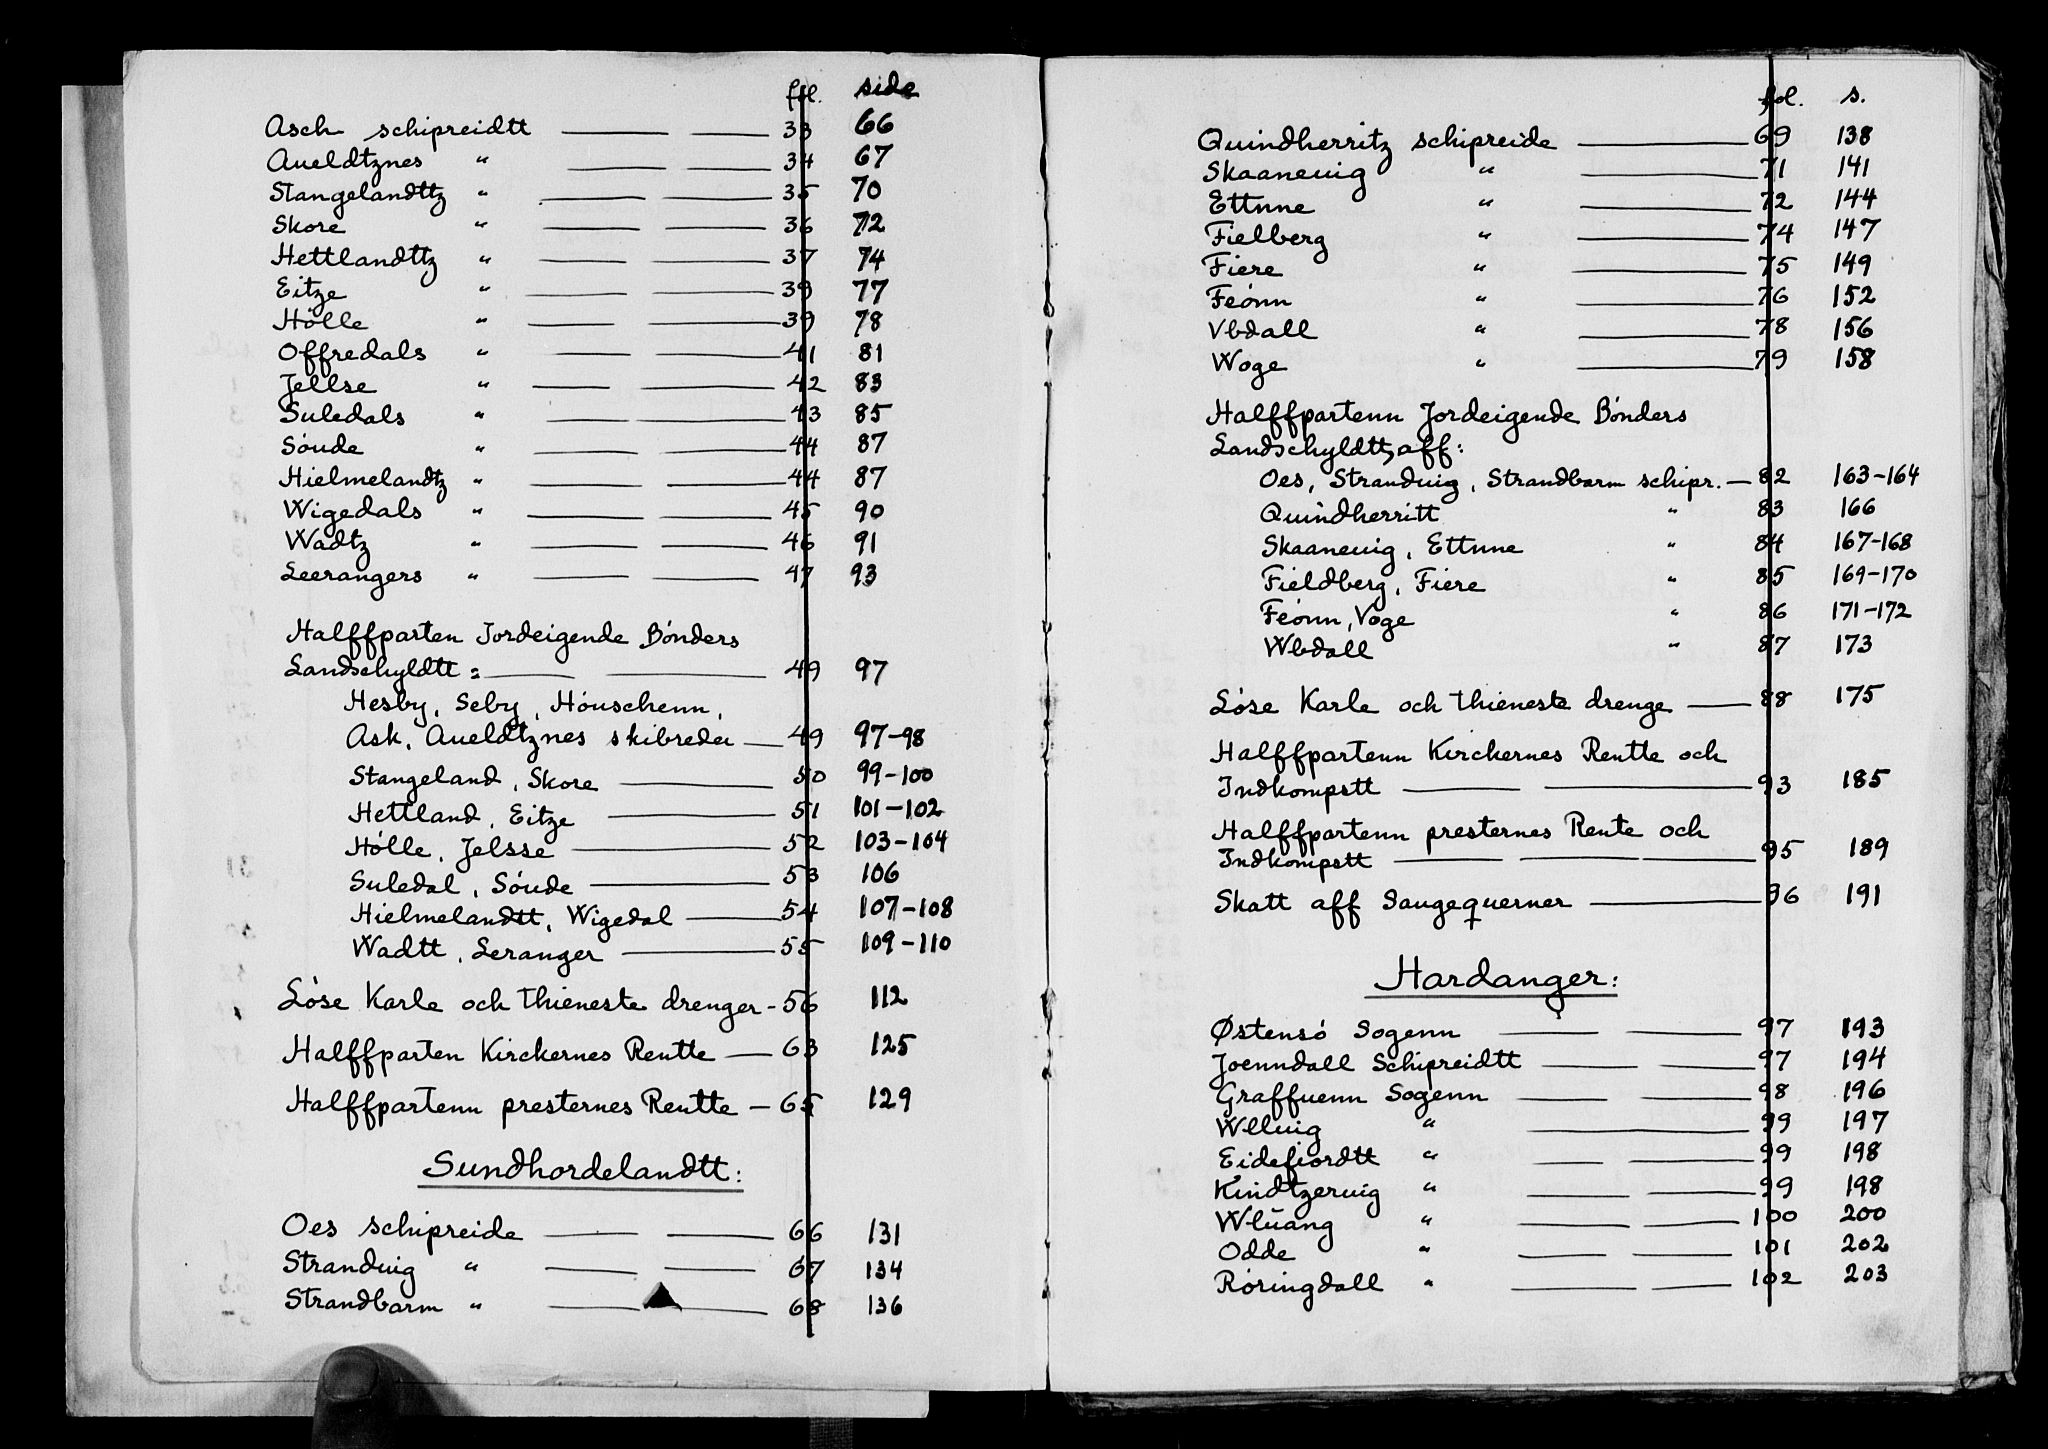 fol. side
Asch schipreidtt — — 33 66
Aueldtznes " — — 34 67
Stangelandttz " — — 35 70
Skore " — — 36 72
Hettlandttz " — — 37 74
Eitze " — — 39 77
Hölle " — — 39 78
Offredals " — — 41 81
Jellse " — — 42 83
Suledals " — — 43 85
Sóude " — — 44 87
Hielmelandtz " — — 44 87
Wigedals " — — 45 90
Wadtz " — — 46 91
Leerangers " — — 47 93
Halffparten Jordeigende Bónders
Landschyldtt : — — 49 97
Hesby, Seby, Hóuschenn,
Ask, Aueldtznes skibreder — 49 97-98
Stangeland, Skore — 50 99-100
Hettland, Eitze — 51 101-102
Hólle, Jelsse — 52 103-104
Suledal, Sóude — 53 106
Hielmelandtt, Wigedal — 54 107-108
Wadtt, Leranger — 55 109-110
Lóse Karle och thieneste drenger - 56 112
Halffparten Kirckernes Rentte — 63 125
Halffpartenn presternes Rentte — 65 129
Sundhordelandtt:
Oes schipreide — — 66 131
Stranduig " — — 67 134
Strandbarm " — — 68 136
fol. s.
Quindherritz schipreide — 69 138
Skaaneuig " — 71 141
Ettnne " — 72 144
Fielberg " — 74 147
Fiere " — 75 149
Feónn " — 76 152
Vbdall " — 78 156
Woge " — 79 158
Halffpartenn Jordeigende Bónders
Landschyldtt, aff:
Oes, Stranduig, Strandbarm schipr. — 82 163-164
Quindherritt " 83 166
Skaaneuig, Ettnne " 84 167-168
Fieldberg, Fiere " 85 169-170
Feónn, Voge " 86 171-172
Wbdall " 87 173
Lóse Karle och thieneste drenge — 88 175
Halffpartenn Kirckernes Rentte och
Indkompstt — — 93 185
Halffpartenn presternes Rente och
Indkompstt — — — 95 189
Skatt aff Saugequerner — 96 191
Hardanger:
Østensó Sogenn — — 97 193
Joenndall Schipreidtt — — 97 194
Graffuenn Sogenn — — 98 196
Wlluig " — 99 197
Eidefiordtt " — — 99 198
Kindtzeruig " — — 99 198
Wlüang " — — 100 200
Odde " — — 101 202
Róringdall " — — 102 203